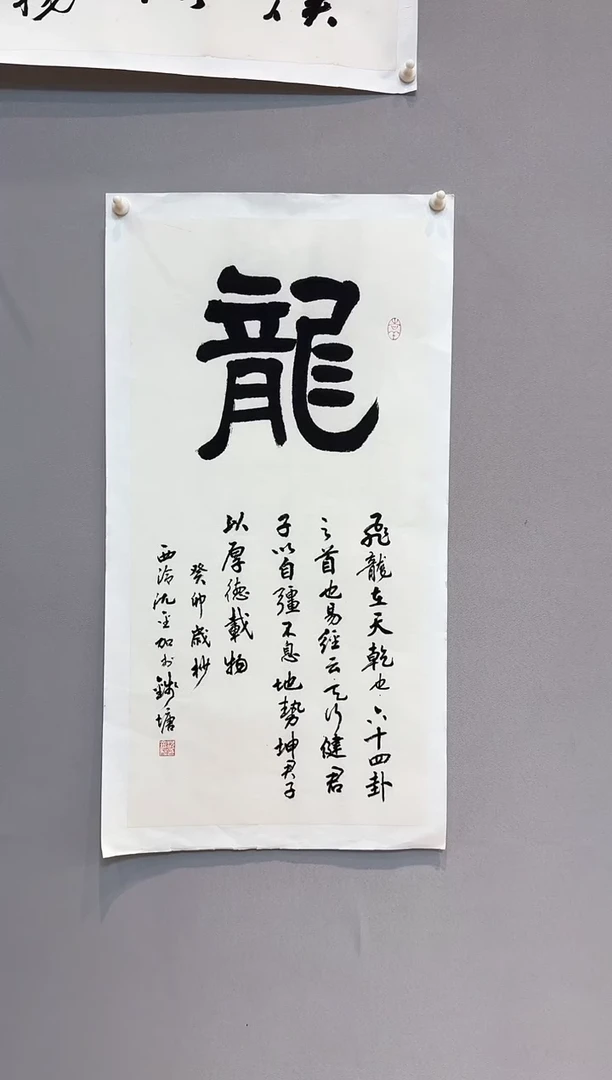 龍
飛龍在天乾也六十四卦
之首也易經云天行健君
子以自彊不息地勢坤君子
以厚德載物
癸卯歲杪
西泠沈
加於錢塘